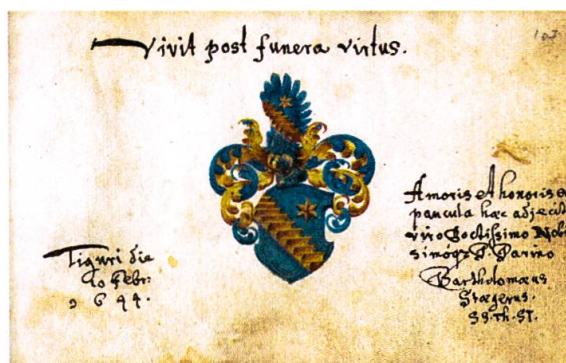 Vivit post funera virtus.
107
Tiguri die
10 Febr:
1644.
Amoris et honoris
paucula hæc adjecit
viro Doctissimo Nobi
simóqz D.
Bartholomæus
Stægerus.
SS. Th. St.